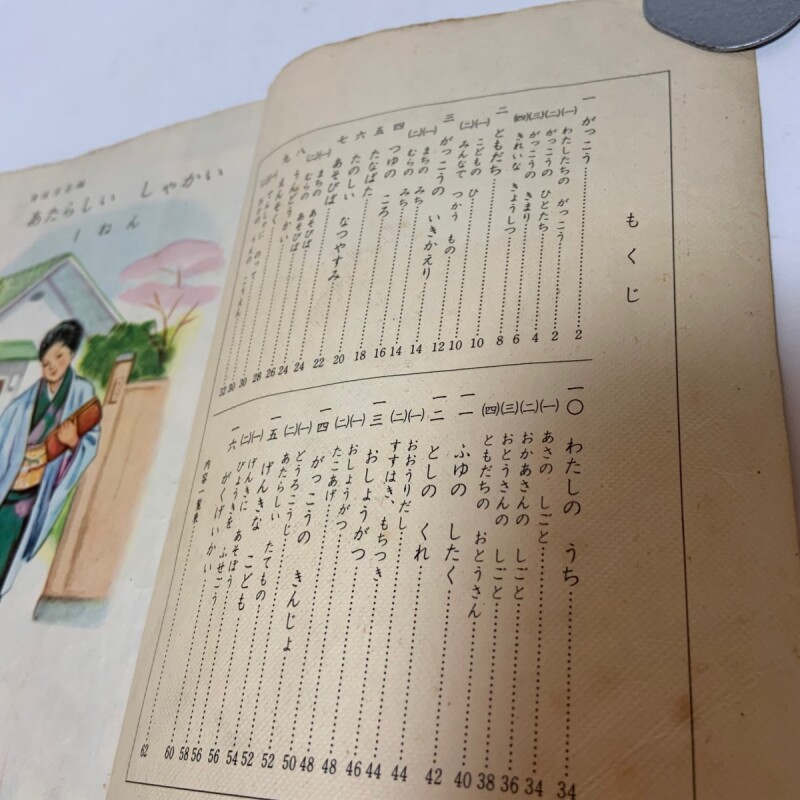 あたらしい しゃかい
1 ねん
もくじ
一 がっこう……2
㈠ わたしたちの がっこう……2
㈡ がっこうの ひとたち……4
㈢ がっこうの きまり……6
㈣ きれいな きょうしつ……8
二 ともだち……10
㈠ こどもの ひ……10
㈡ みんなで つかう もの……12
三 がっこうの いきかえり……14
㈠ まちの みち……14
㈡ むらの みち……16
四 つゆの ころ……18
五 たなばた……20
六 たのしい なつやすみ……22
七 あそびば……24
㈠ まちの あそびば……24
㈡ むらの あそびば……26
八 うんどうかい……28
九 えんそく……30
㈠ でんしゃに のって……30
㈡ ……32
一〇 わたしの うち……34
㈠ あさの しごと……34
㈡ おかあさんの しごと……36
㈢ おとうさんの しごと……38
㈣ ともだちの おとうさん……40
一一 ふゆの したく……42
一二 としの くれ……44
㈠ おおうりだし……44
㈡ すすはき、もちつき……46
一三 おしょうがつ……48
㈠ おしょうがつ……48
㈡ たこあげ……50
一四 がっこうの きんじょ……52
㈠ どうろこうじ……52
㈡ あたらしい たてもの……54
一五 げんきな こども……56
㈠ げんきに あそぼう……56
㈡ びょうきを ふせごう……58
一六 がくげいかい……60
内容一覧表……62